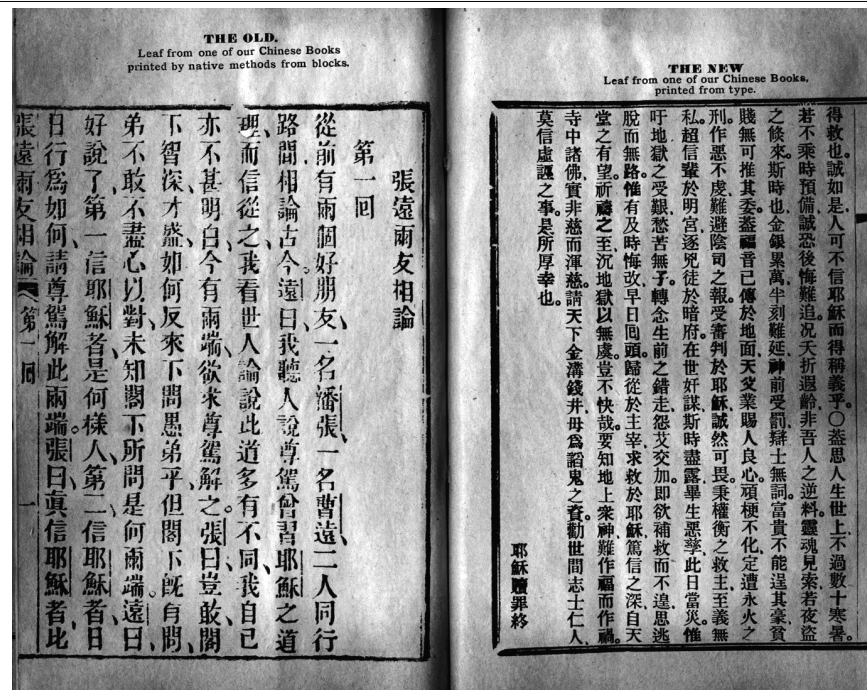 THE OLD.
Leaf from one of our Chinese Books
printed by native methods from blocks.
張遠兩友相論
第一回
從前有兩個好朋友、一名潘張、一名曹遠、二人同行
路間、相論古今。遠曰、我聽人說尊駕曾習耶穌之道
理、而信從之、我看世人論說此道、多有不同、我自己
亦不甚明白、今有兩端、欲求尊駕解之。張曰、豈敢、閣
下智深才盛、如何反來下問愚弟乎、但閣下既自問、
弟不敢不盡心以對、未知閣下所問是何兩端。遠曰、
好說了、第一信耶穌者是何樣人、第二信耶穌者、日
日行爲如何、請尊駕解此兩端。張曰、眞信耶穌者、比
張遠兩友相論 第一回 一
THE NEW
Leaf from one of our Chinese Books,
printed from type.
得救也。誠如是、人可不信耶穌而得稱義乎。〇蓋思人生世上、不過數十寒暑。
若不乘時預備、誠恐後悔難追。况夭折遐齡、非吾人之逆料。靈魂見索、若夜盜
之條來。斯時也、金銀累萬、半刻難延、神前受罰、辯士無詞。富貴不能逞其豪、貧
賤無可推其委。蓋福音已傳於地面、天父業賜人良心。頑梗不化、定遭永火之
刑、作惡不虔、難避陰司之報。受審判於耶穌、誠然可畏。秉權衡之救主、至義無
私。超信輩於明宮、逐兇徒於暗府。在世奸謀、斯時盡露、畢生惡孽、此日當災。惟
吁地獄之受艱、愁苦無子、轉念生前之錯走、怨艾交加。即欲補救而不遑、思逃
脫而無路。惟有及時悔改、早日囘頭。歸從於主宰、求救於耶穌、篤信之深、自天
堂之有望。祈禱之至、沉地獄以無虞。豈不快哉。要知地上衆神、難作福而作禍。
寺中諸佛、實非慈而渾慈。請天下金溝錢井、毋爲諂鬼之資。勸世間志士仁人、
莫信虛誣之事。是所厚幸也。
耶穌贖罪終